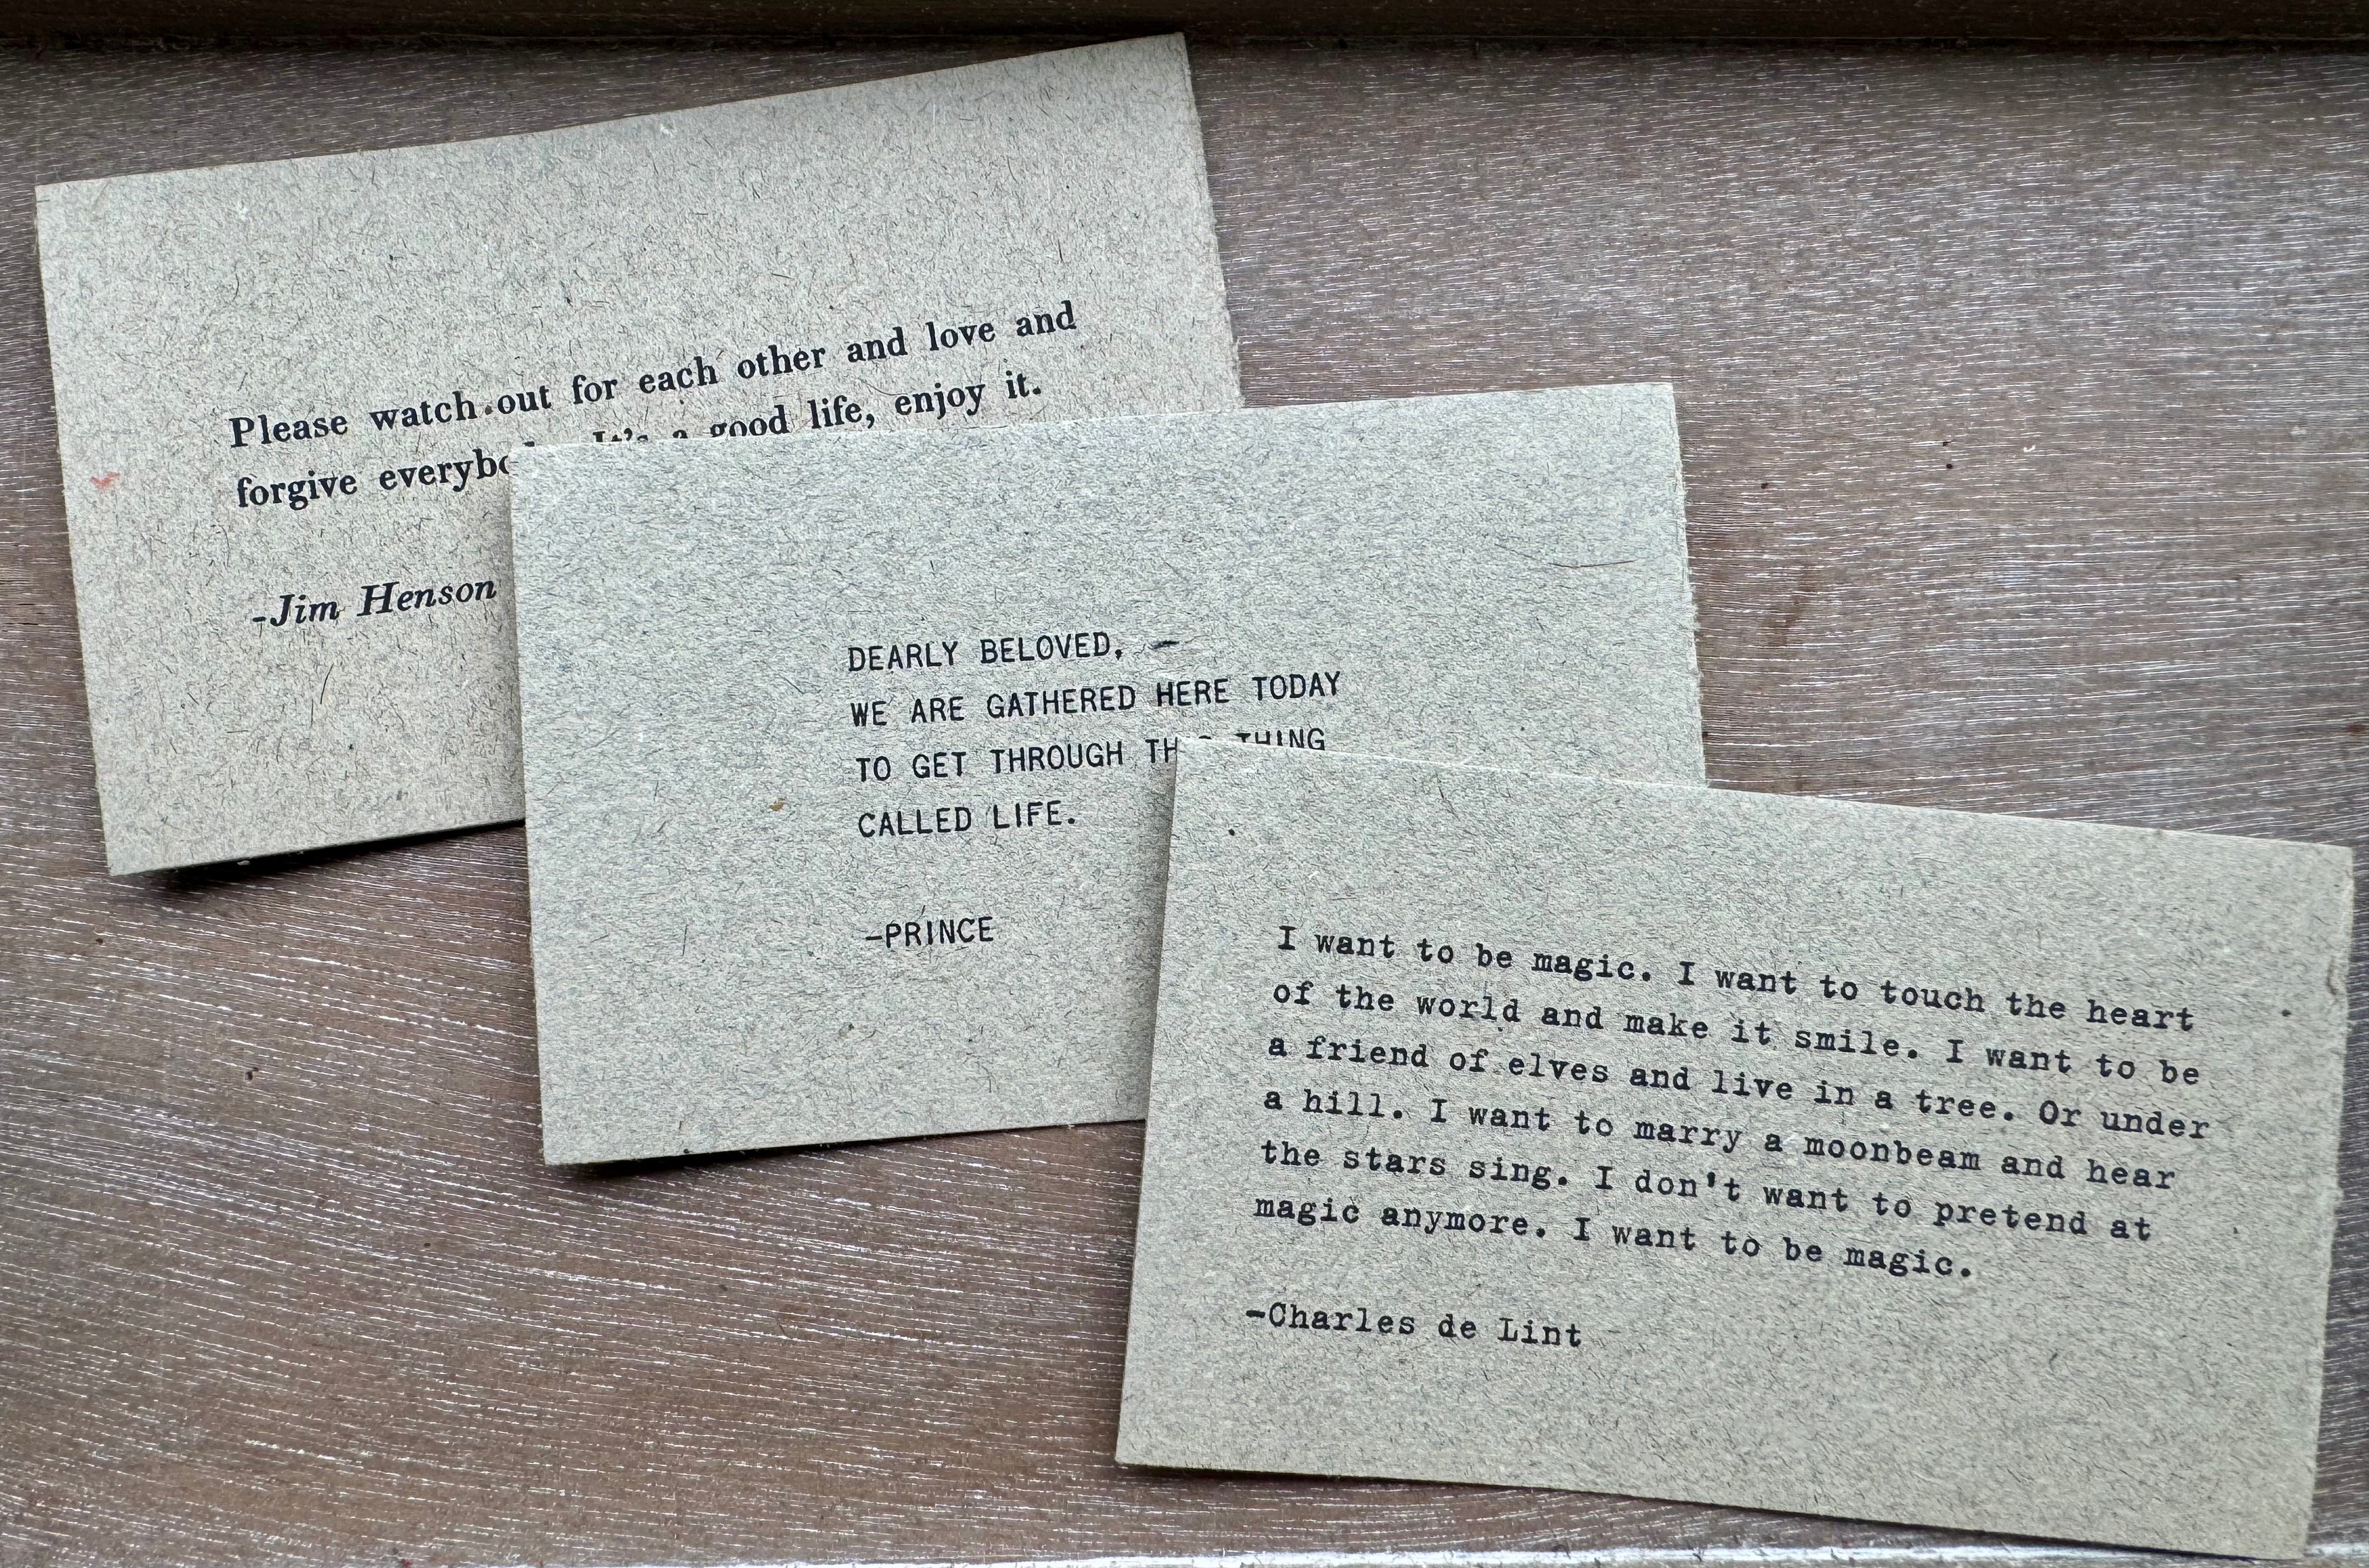 Please watch out for each other and love and
forgive everybody. It's a good life, enjoy it.
-Jim Henson
DEARLY BELOVED,
WE ARE GATHERED HERE TODAY
TO GET THROUGH THIS THING
CALLED LIFE.
-PRINCE
I want to be magic. I want to touch the heart
of the world and make it smile. I want to be
a friend of elves and live in a tree. Or under
a hill. I want to marry a moonbeam and hear
the stars sing. I don't want to pretend at
magic anymore. I want to be magic.
-Charles de Lint